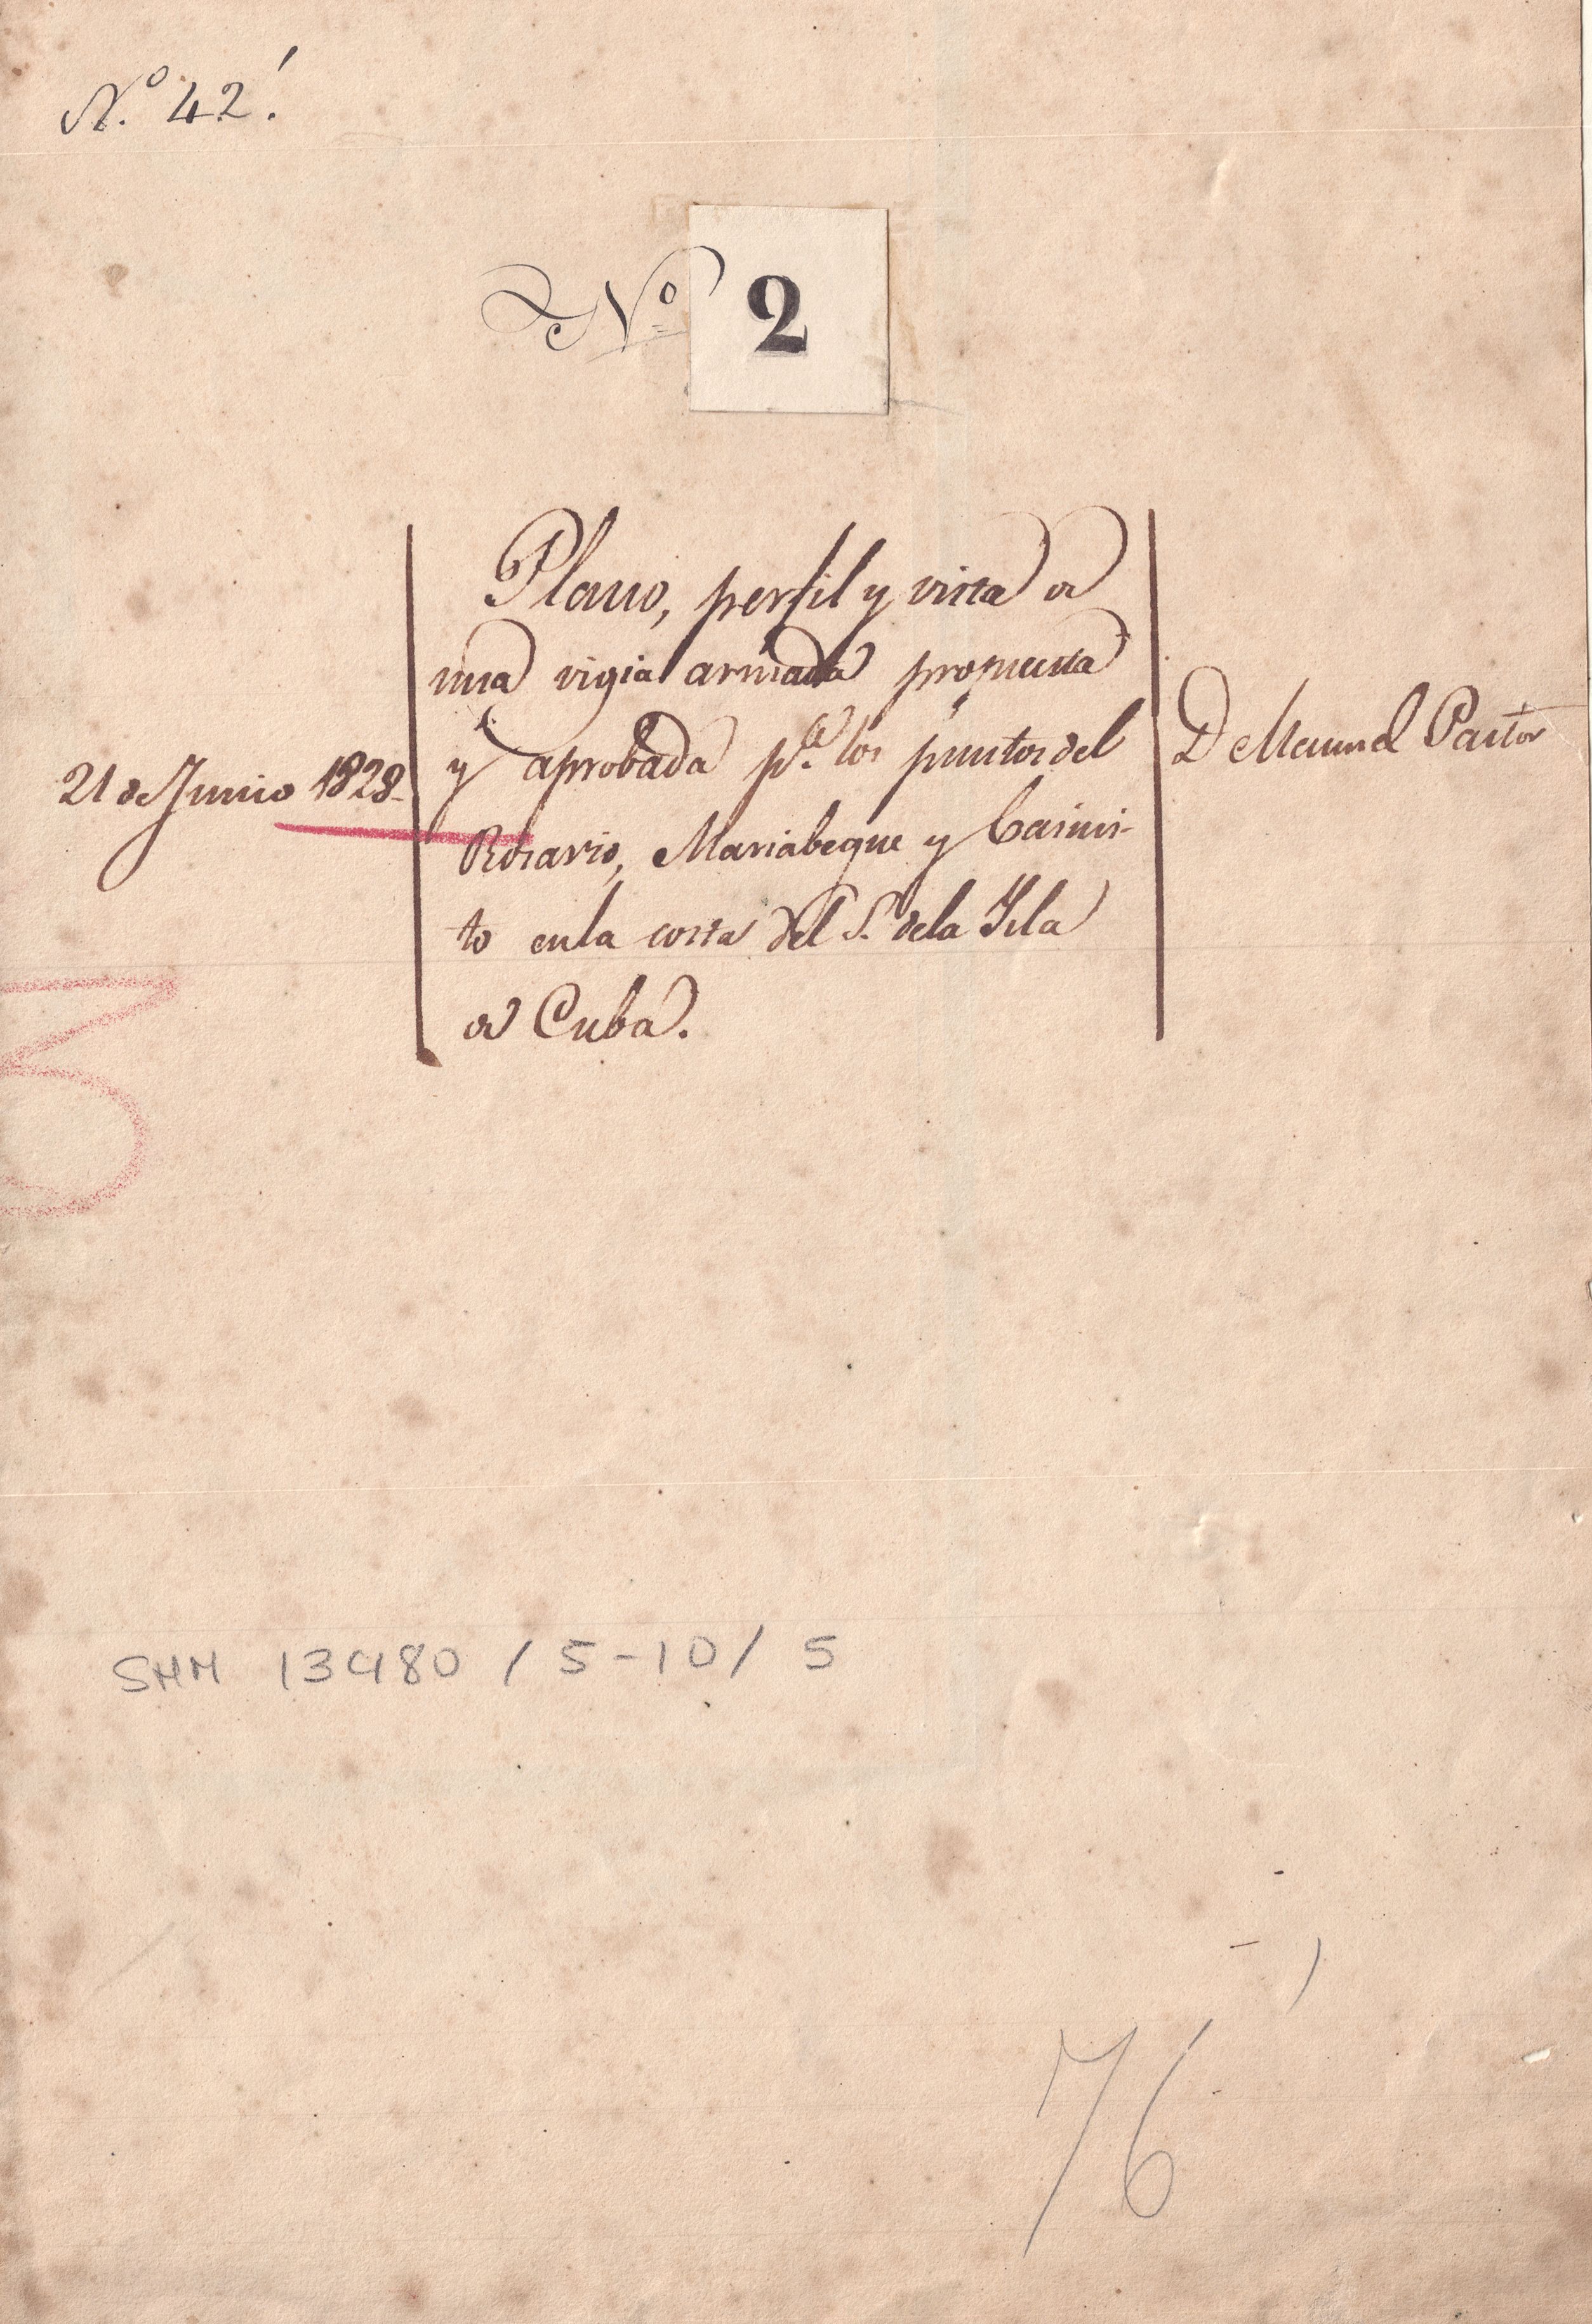 N.º 42.
Nº 2
Plano, perfil y vista de
una vigia armada propuesta
y aprobada p.ª los puntos del
21 de Junio 1828.
D Manuel Pastor
Rosario, Mariabeque y Caimi-
to en la costa del S. de la Ysla
de Cuba.
SHM 13480 / 5-10 / 5
76